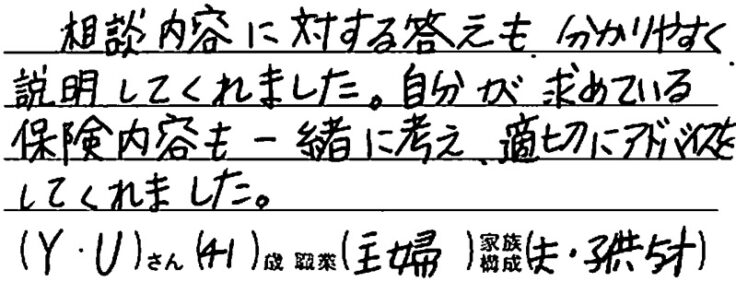 相談内容に対する答えも、分かりやすく
説明してくれました。自分が求めている
保険内容も一緒に考え、適切にアドバイスを
してくれました。
(Y・U)さん(41)歳 職業(主婦)家族構成(夫・子供5才)